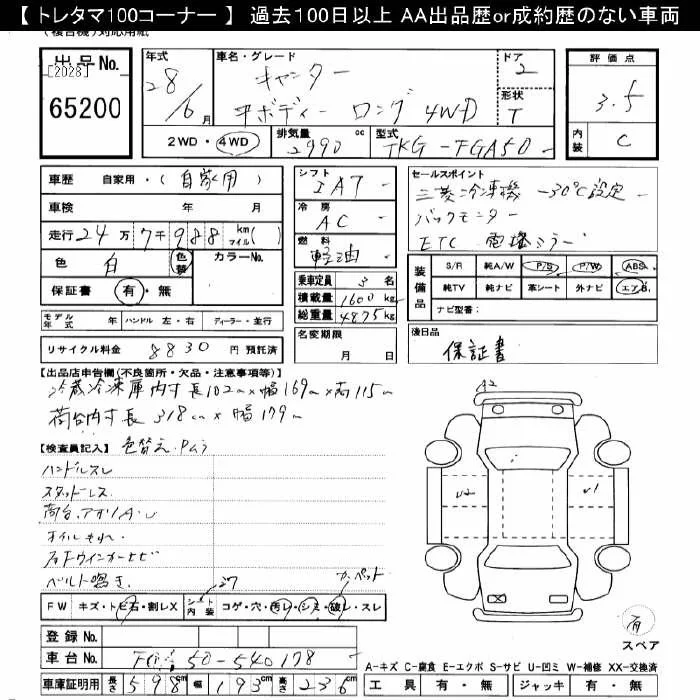 【 トレタマ100コーナー 】 過去100日以上 AA出品歴or成約歴のない車両
(複合機)対応用紙
出品No.
[2028]
65200
年式
28/6月
車名・グレード
キャンター
平ボディー ロング 4WD
ドア
2
形状
T
評価点
3.5
内装
C
2WD・4WD
排気量
2990 cc
型式
TKG-FGA50
車歴 自家用・(自家用)
車検 年 月
走行 24万7千988 km マイル( )
色 白 色替 カラーNo.
保証書 有・無
モデル年式 年 ハンドル 左・右 ディーラー・並行
リサイクル料金 8830 円 預託済
シフト
IAT
冷房
AC
燃料
軽油
乗車定員 3 名
積載量 1600 kg
総重量 4875 kg
名変期限
月 日
セールスポイント
三菱冷凍機 -30℃設定
バックモニター
ETC 電格ミラー
装備品
S/R 純A/W P/S P/W ABS
純TV 純ナビ 革シート 外ナビ エアB
ナビ型番:
後日品
保証書
【出品店申告欄(不良箇所・欠品・注意事項等)】
冷蔵冷凍庫内寸長102cm×幅169cm×高115cm
荷台内寸長318cm×幅179cm
【検査員記入】 色替え
ハンドルスレ
スタッドレス
荷台、アオリA・U
オイル
ベルト鳴き
F W キズ・トビ石・割レX シート内装 コゲ・穴・汚レ・シミ・破レ・スレ
カーペット
登録No.
車台No. FGA50-540178
車庫証明用 長さ 598cm 幅 193cm 高さ 236cm
A2
U2
U1
有
スペア
A-キズ C-腐食 E-エクボ S-サビ U-凹ミ W-補修 XX-交換済
工具 有・無 ジャッキ 有・無